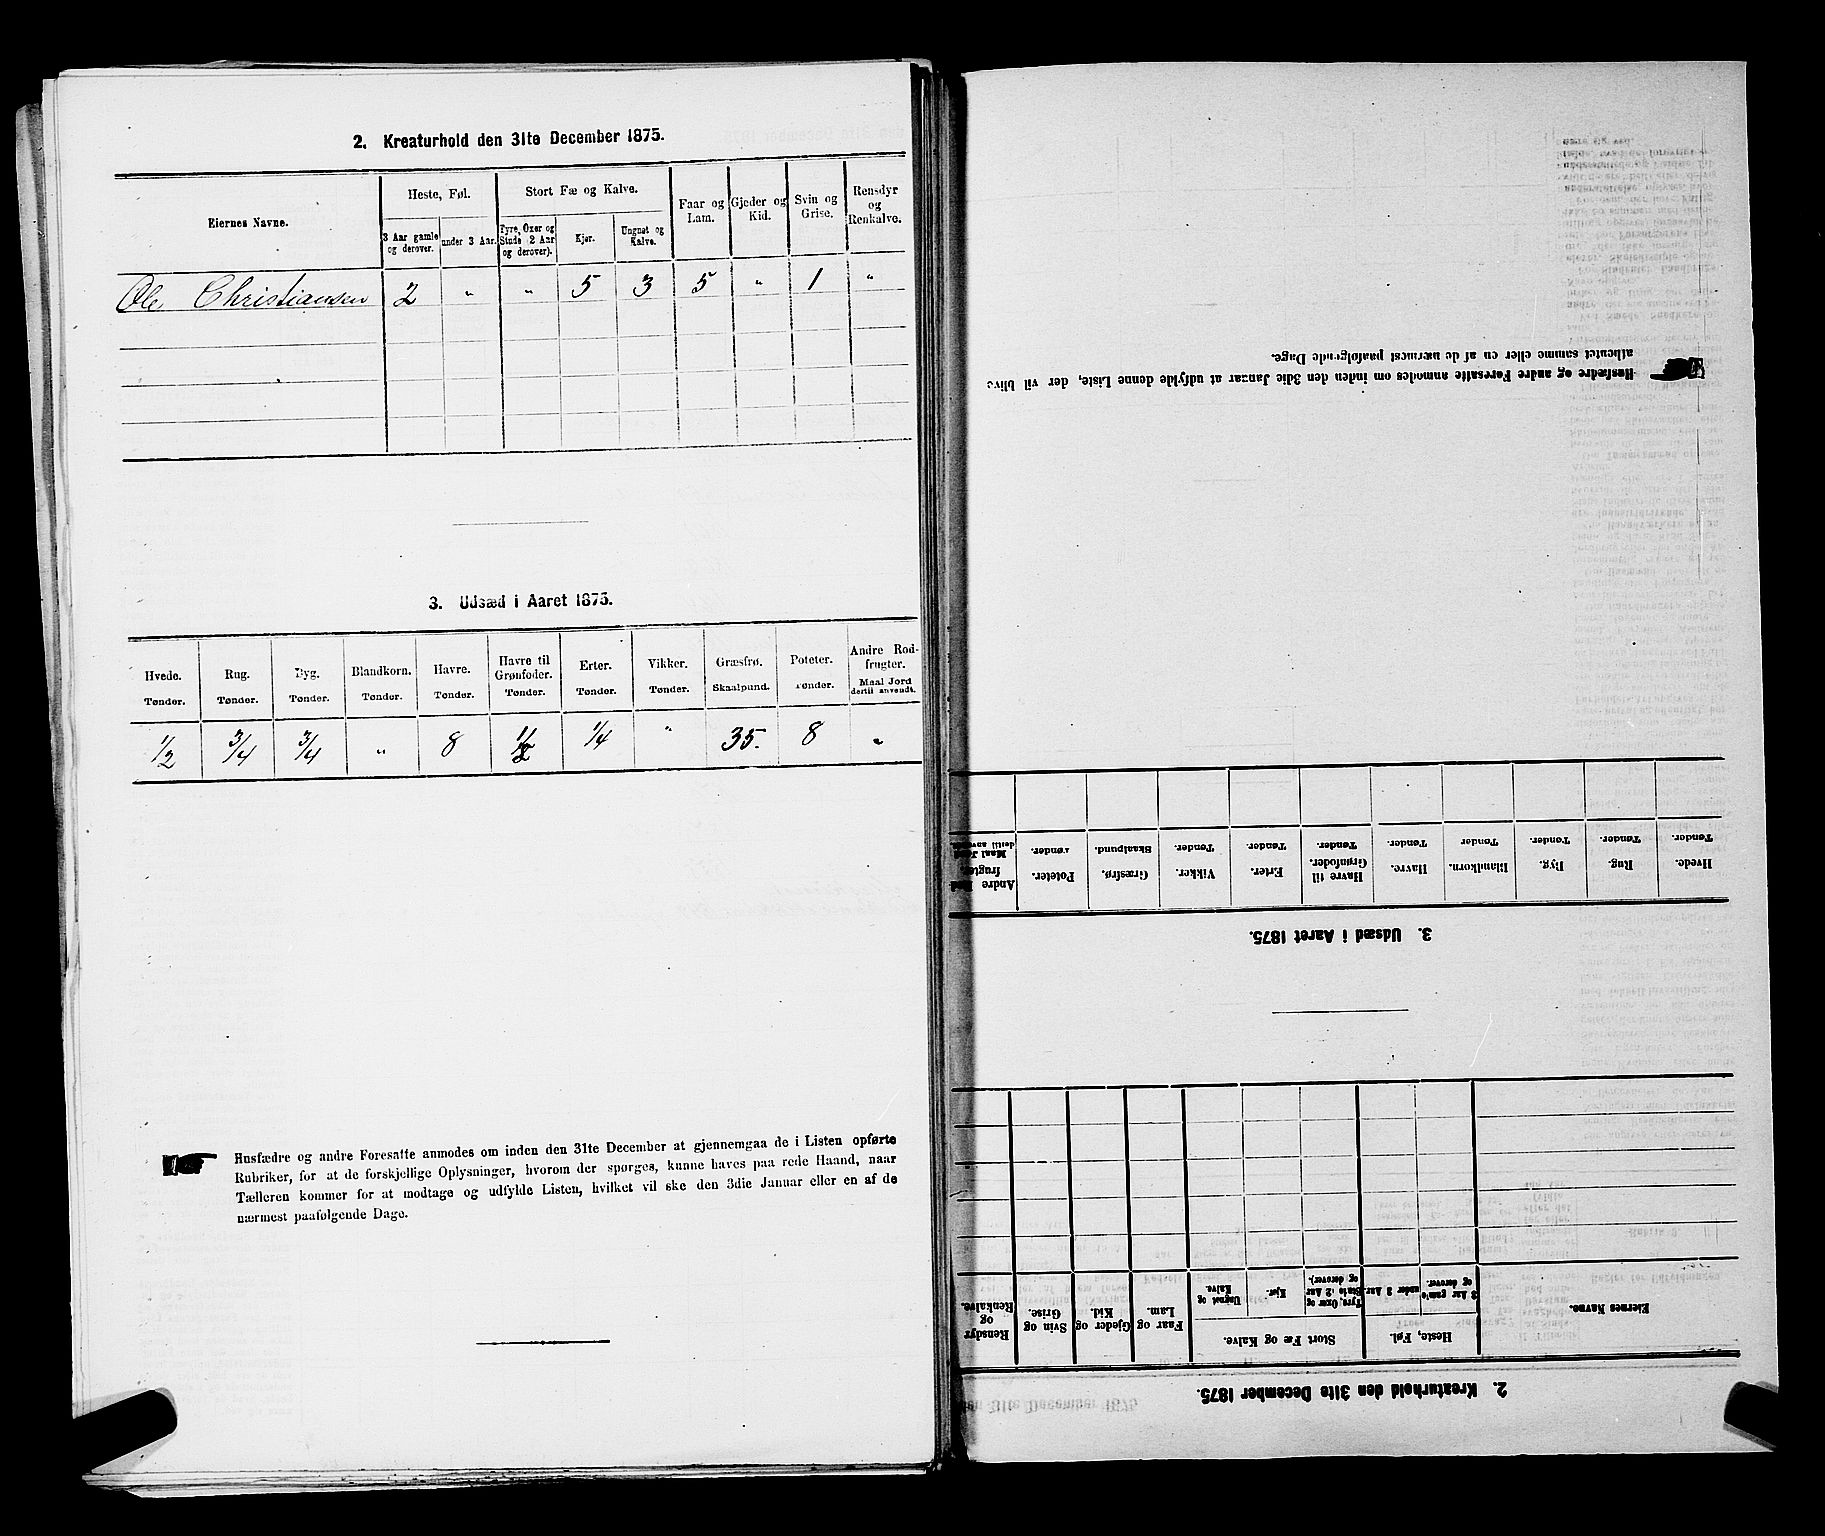 2. Kreaturhold den 31te December 1875.
Eiernes Navne.
Heste, Føl.
3 Aar gamle og derover.
under 3 Aar.
Stort Fæ og Kalve.
Tyre, Oxer og Stude (2 Aar og derover).
Kjør.
Ungnøt og Kalve.
Faar og Lam.
Gjeder og Kid.
Svin og Grise.
Rensdyr og Renkalve.
Ole Christiansen 2 " " 5 3 5 " 1 "
3. Udsæd i Aaret 1875.
Hvede. Rug. Byg. Blandkorn. Havre. Havre til Grønfoder. Erter. Vikker. Græsfrø. Poteter. Andre Rodfrugter.
Tønder. Tønder. Tønder. Tønder. Tønder. Tønder. Tønder. Tønder. Skaalpund. Tønder. Maal Jord dertil anvendt.
1/2 3/4 3/4 " 8 1/2 1/4 " 35. 8 "
Husfædre og andre Foresatte anmodes om inden den 31te December at gjennemgaa de i Listen opførte
Rubriker, for at de forskjellige Oplysninger, hvorom der spørges, kunne haves paa rede Haand, naar
Tælleren kommer for at modtage og udfylde Listen, hvilket vil ske den 3die Januar eller en af de
nærmest paafølgende Dage.
2. Kreaturhold den 31te December 1875.
Eiernes Navne.
Heste, Føl.
3 Aar gamle og derover.
under 3 Aar.
Stort Fæ og Kalve.
Tyre, Oxer og Stude (2 Aar og derover).
Kjør.
Ungnøt og Kalve.
Faar og Lam.
Gjeder og Kid.
Svin og Grise.
Rensdyr og Renkalve.
3. Udsæd i Aaret 1875.
Hvede. Rug. Byg. Blandkorn. Havre. Havre til Grønfoder. Erter. Vikker. Græsfrø. Poteter. Andre Rod frugter.
Tønder. Tønder. Tønder. Tønder Tønder. Tønder. Tønder. Tønder. Skaalpund. Tønder. Maal Jord dertil anvendt.
Husfædre og andre Foresatte anmodes om inden den 3die Januar at udfylde denne Liste, der vil blive
afhentet samme eller en af de nærmest paafølgende Dage.